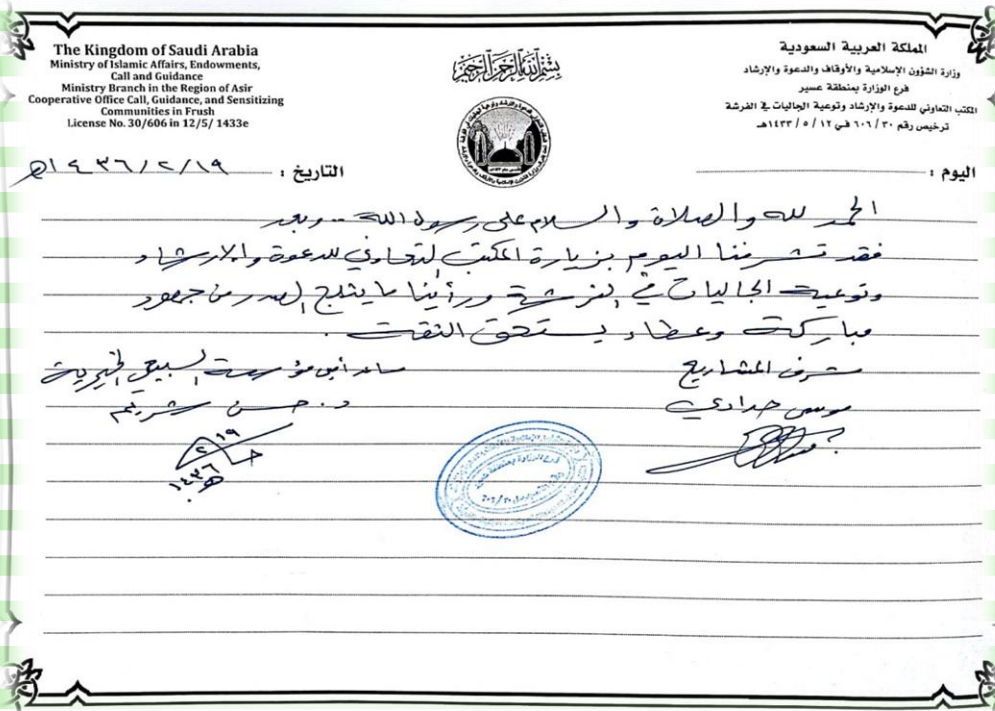 The Kingdom of Saudi Arabia
Ministry of Islamic Affairs, Endowments,
Call and Guidance
Ministry Branch in the Region of Asir
Cooperative Office Call, Guidance, and Sensitizing
Communities in Frush
License No. 30/606 in 12/5/ 1433e
بسم الله الرحمن الرحيم
المملكة العربية السعودية
وزارة الشؤون الإسلامية والأوقاف والدعوة والإرشاد
فرع الوزارة بمنطقة عسير
المكتب التعاوني للدعوة والإرشاد وتوعية الجاليات في الفرشة
ترخيص رقم ٣٠ / ٦٠٦ في ١٢ / ٥ / ١٤٣٣هـ
اليوم :
التاريخ : ١٩ / ٢ / ١٤٣٦هـ
الحمد لله والصلاة والسلام على رسول الله .. وبعد
فقد تشرفنا اليوم بزيارة المكتب التعاوني للدعوة والارشاد
وتوعية الجاليات في الفرشة ورأينا ما يثلج الصدر من جهود
مباركة وعطاء يستحق الثقة .
مشرف المشاريع
موسى حدادي
مؤسسة السبيعي الخيرية
د. حسن شريم
١٩
٢
١٤٣٦هـ